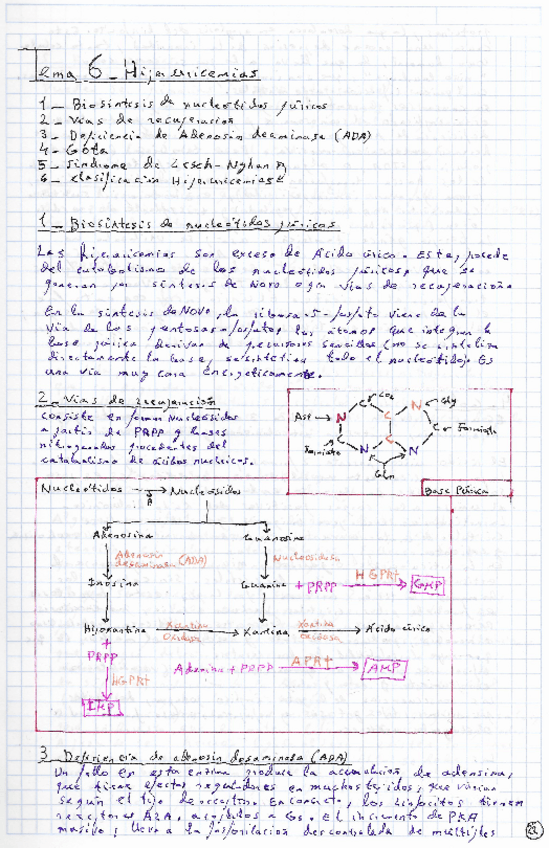 Tema 6 - Hiperuricemias
1 - Biosíntesis de nucleótidos púricos
2 - Vías de recuperación
3 - Deficiencia de Adenosin deaminasa (ADA)
4 - Gota
5 - Síndrome de Lesch-Nyhan
6 - Clasificación Hiperuricemias
1 - Biosíntesis de nucleótidos púricos
Las hiperuricemias son exceso de Ácido úrico. Este, procede
del catabolismo de los nucleótidos púricos, que se
generan por síntesis de Novo o por vías de recuperación
En la síntesis de Novo, la ribosa-5-fosfato viene de la
vía de las pentosas-fosfatos, los átomos que integran la
base púrica derivan de precursores sencillos (no se sintetiza
directamente la base, se sintetiza todo el nucleótido). Es
una vía muy cara energéticamente.
2 - Vías de recuperación
Consiste en formar Nucleósidos
a partir de PRPP y bases
nitrogenadas procedentes del
catabolismo de ácidos nucleicos.
CO₂
Asp
N
C
C
N
Gly
C
Formiato
Formiato
N
N
Gln
Base Púrica
Nucleótidos
Nucleósidos
Adenosina
Guanosina
Adenosin
desaminasa (ADA)
Nucleosidasa
Inosina
Guanina + PRPP
HGPRt
GMP
Hipoxantina
Xantina
Oxidasa
Xantina
Xantina
oxidasa
Ácido úrico
+
PRPP
Adenina + PRPP
APRt
AMP
HGPRt
IMP
3 - Deficiencia de adenosin desaminasa (ADA)
Un fallo en esta enzima produce la acumulación de adenosina,
que tiene efectos reguladores en muchos tejidos, que varían
según el tipo de receptor. En concreto, los linfocitos tienen
receptores A2A, acoplados a Gs. El incremento de PKA
masivo, lleva a la fosforilación descontrolada de múltiples